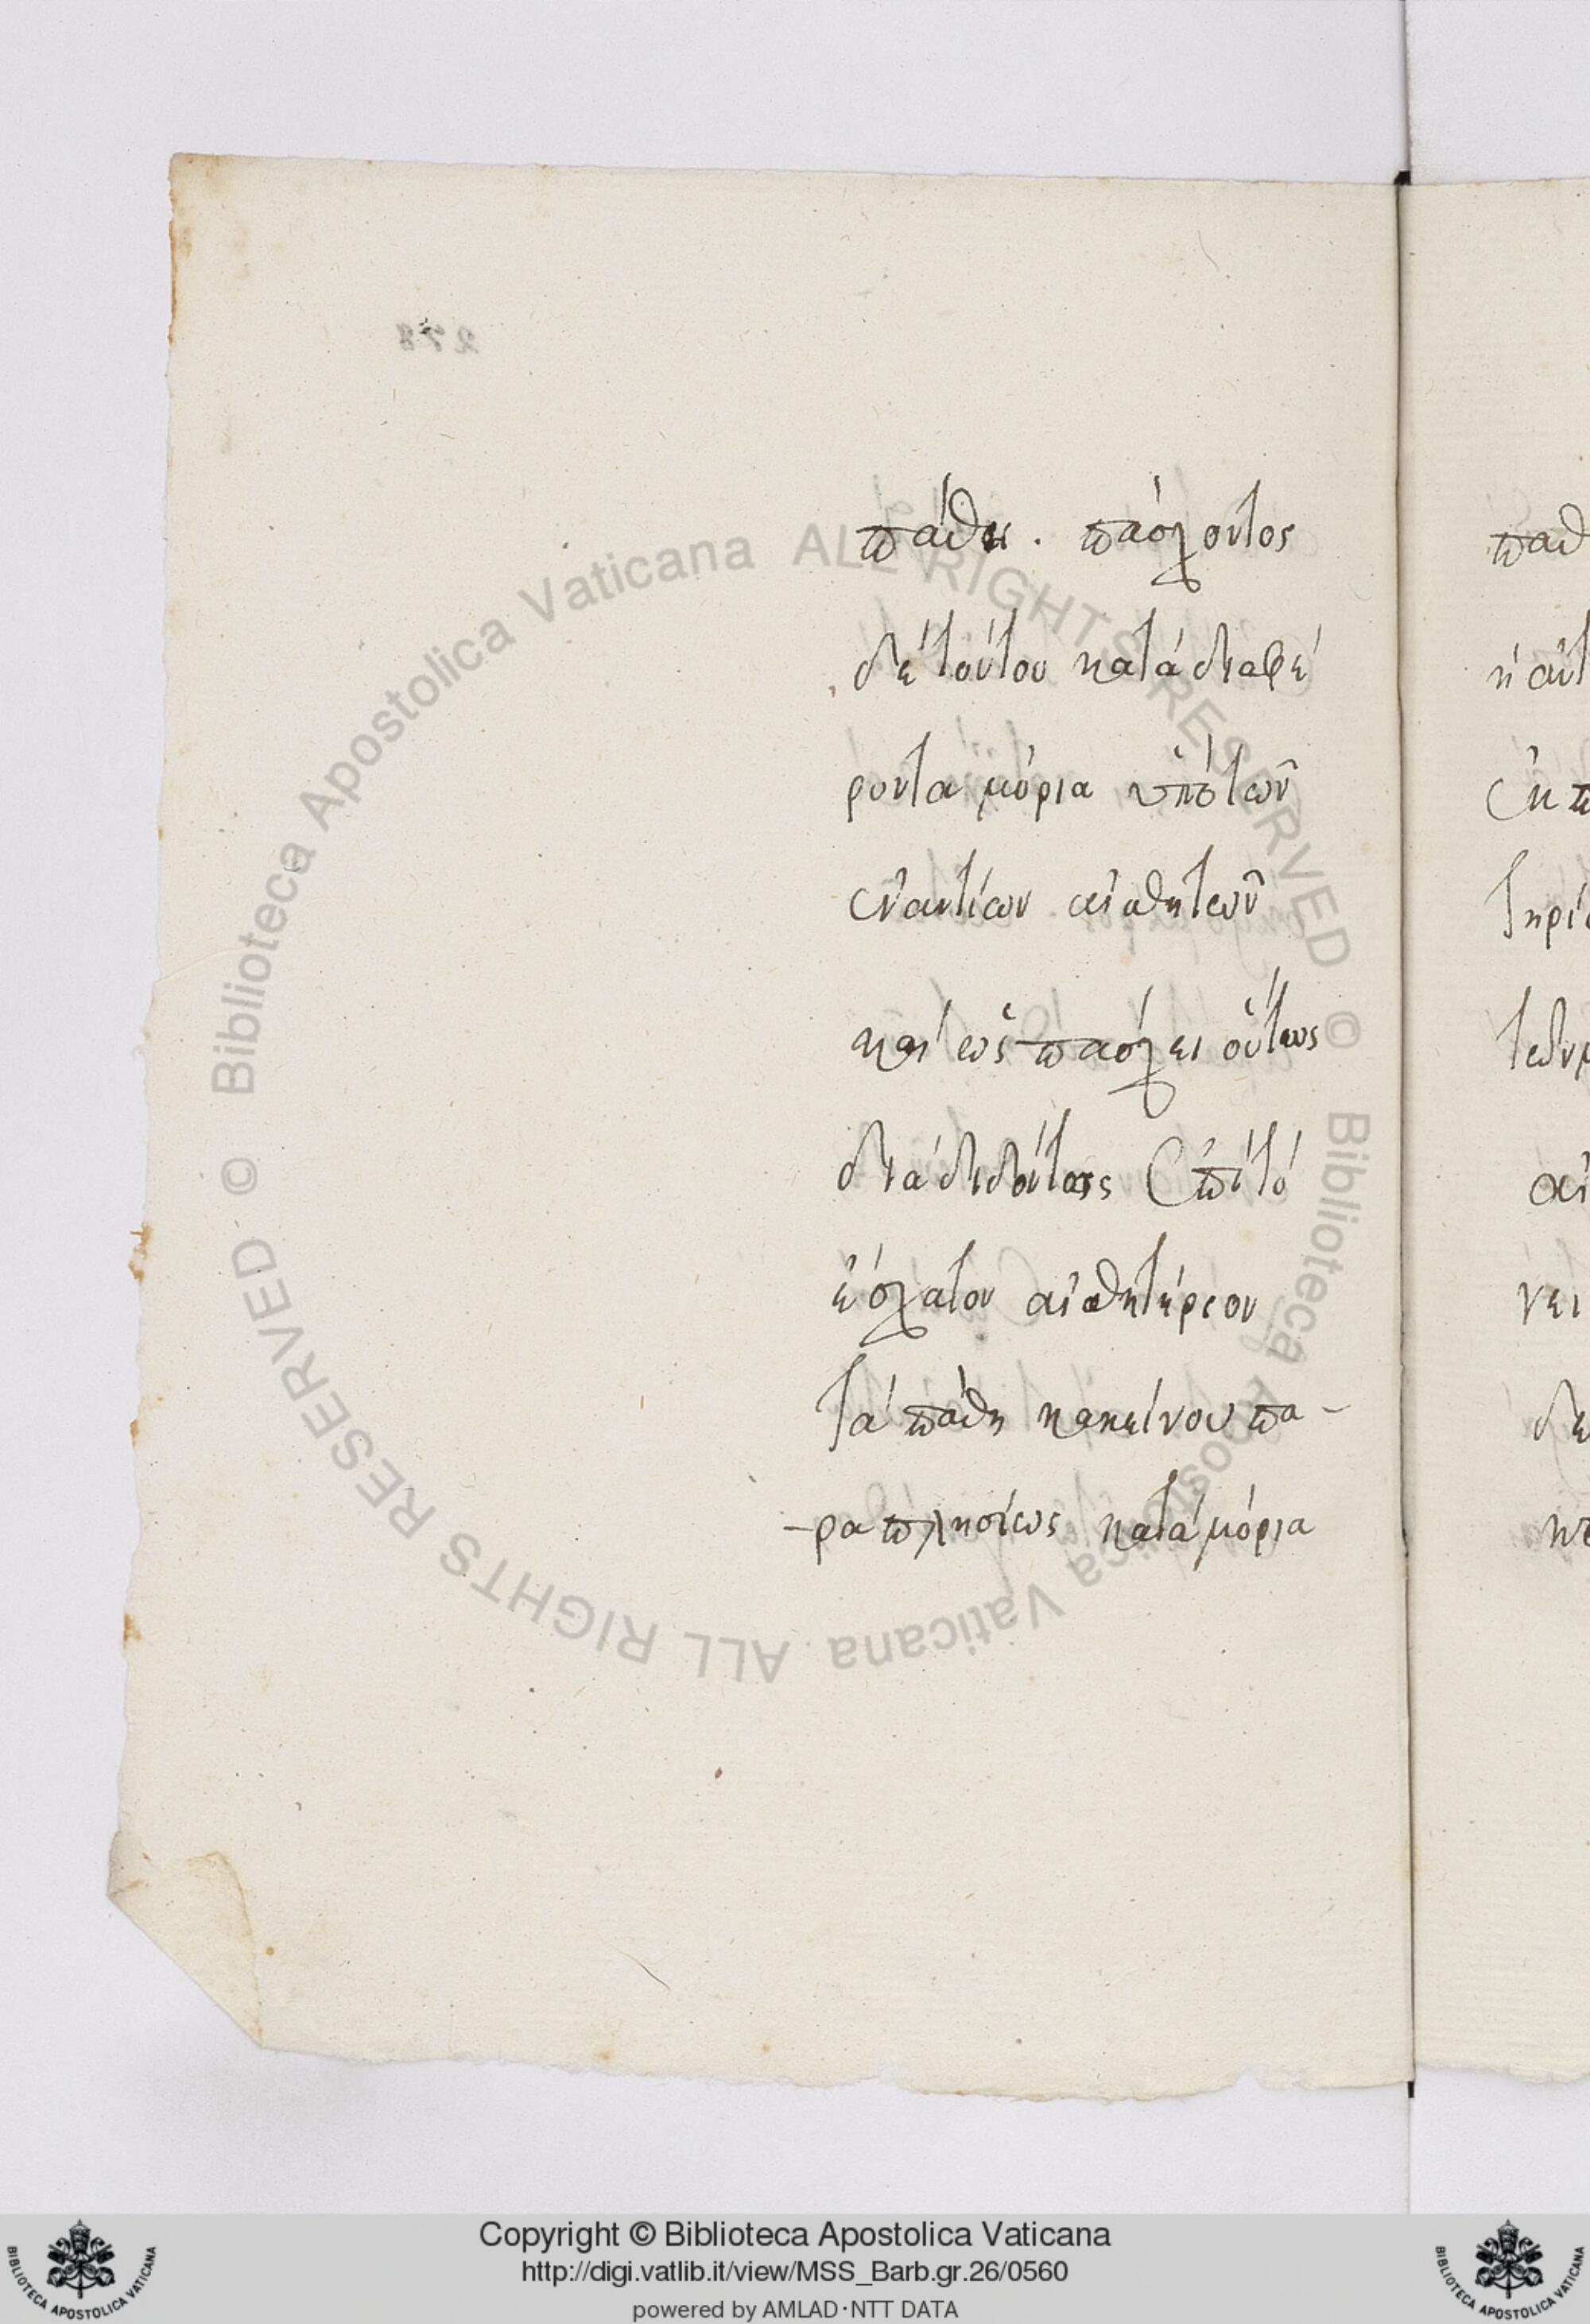 278
πάθει. πάσχοντος
δὲ τούτου κατὰ διαφέ
ροντα μόρια ὑπὸ τῶν
ἐναντίων αἰσθητῶν
καὶ ὡς πάσχει οὕτως
διὰ διδόντος ἐπὶ τὸ
ἔσχατον αἰσθητήριον
τὰ πάθη κακείνου πα-
-ραπλησίως κατὰ μόρια
παθ
ἡ αὐτ
ἐκ π
τηρί
αἰ
νει
δε
© Biblioteca Apostolica Vaticana ALL RIGHTS RESERVED © Biblioteca Apostolica Vaticana ALL RIGHTS RESERVED
Copyright © Biblioteca Apostolica Vaticana
http://digi.vatlib.it/view/MSS_Barb.gr.26/0560
powered by AMLAD·NTT DATA
BIBLIOTECA APOSTOLICA VATICANA
BIBLIOTECA APOSTOLICA VATICANA